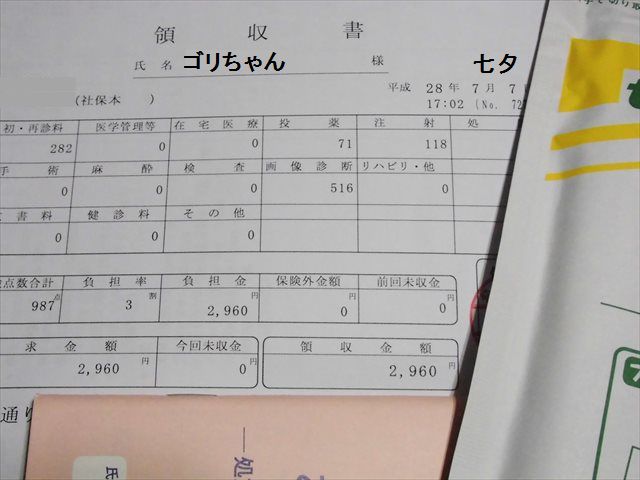 領 収 書
氏 名 ゴリちゃん 様 七夕
平成 28 年 7 月 7
(社保本 )
17:02 (No. 72
初・再診料 医学管理等 在 宅 医 療 投 薬 注 射 処
282 0 0 71 118
手 術 麻 酔 検 査 画 像 診 断 リハビリ・他
0 0 0 516 0
書 料 健 診 料 そ の 他
0 0 0
点数合計 負 担 率 負 担 金 保険外金額 前回未収金
987点 3 割 2,960 円 0 円 0 円
求 金 額 今回未収金 領 収 金 額
2,960 円 0 円 2,960 円
通り
処